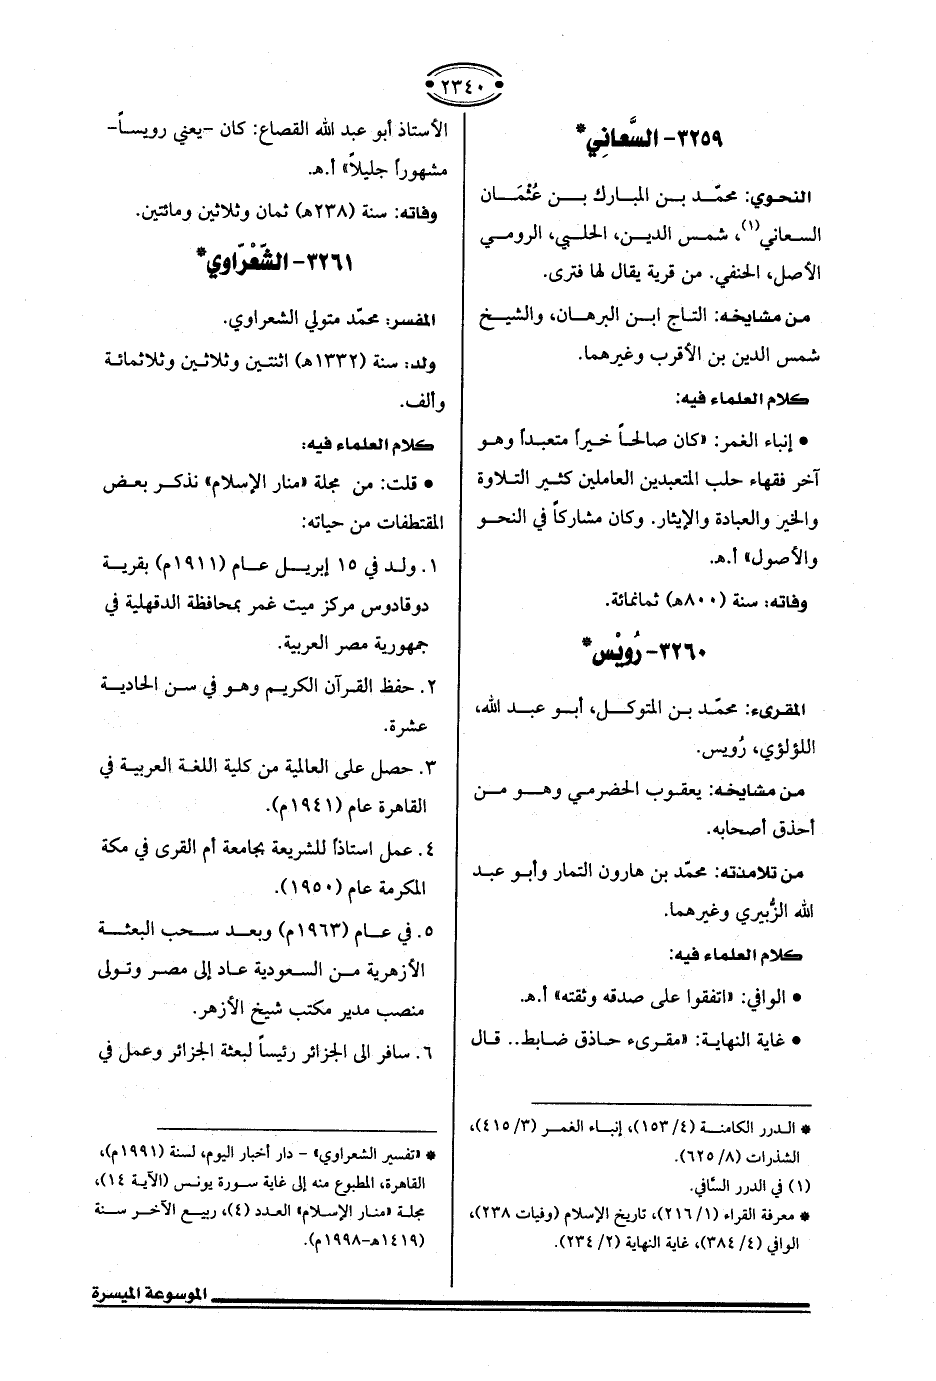 ٢٣٤٠
٣٢٥٩- السَّعاني*
النحوي: محمّد بن المبارك بن عُثْمَان
السعاني(١)، شمس الدين، الحلبي، الرومي
الأصل، الحنفي. من قرية يقال لها فترى.
من مشايخه: التاج ابن البرهان، والشيخ
شمس الدين بن الأقرب وغيرهما.
كلام العلماء فيه:
• إنباء الغمر: «كان صالحاً خيراً متعبداً وهو
آخر فقهاء حلب المتعبدين العاملين كثير التلاوة
والخير والعبادة والإيثار. وكان مشاركاً في النحو
والأصول» أ.هـ.
وفاته: سنة (٨٠٠هـ) ثمانمائة.
٣٢٦٠- رُوَيْس*
المقرىء: محمّد بن المتوكل، أبو عبد الله،
اللؤلؤي، رُويس.
من مشايخه: يعقوب الحضرمي وهو من
أحذق أصحابه.
من تلامذته: محمّد بن هارون التمار وأبو عبد
الله الزُّبيري وغيرهما.
كلام العلماء فيه:
• الوافي: «اتفقوا على صدقه وثقته» أ.هـ.
• غاية النهاية: «مقرىء حاذق ضابط.. قال
* الدرر الكامنة (٤/ ١٥٣)، إنباء الغمر (٣/ ٤١٥)،
الشذرات (٨/ ٦٢٥).
(١) في الدرر السَّافي.
* معرفة القراء (١/ ٢١٦)، تاريخ الإسلام (وفيات ٢٣٨)،
الوافي (٤/ ٣٨٤)، غاية النهاية (٢/ ٢٣٤).
الأستاذ أبو عبد الله القصاع: كان -يعني رويساً-
مشهوراً جليلاً» أ.هـ.
وفاته: سنة (٢٣٨هـ) ثمان وثلاثين ومائتين.
٣٢٦١- الشَّعْرَاوي*
المفسر: محمّد متولي الشعراوي.
ولد: سنة (١٣٣٢هـ) اثنتين وثلاثين وثلاثمائة
وألف.
كلام العلماء فيه:
• قلت: من مجلة «منار الإسلام» نذكر بعض
المقتطفات من حياته:
١. ولد في ١٥ إبريل عام (١٩١١م) بقرية
دوقادوس مركز ميت غمر بمحافظة الدقهلية في
جمهورية مصر العربية.
٢. حفظ القرآن الكريم وهو في سن الحادية
عشرة.
٣. حصل على العالمية من كلية اللغة العربية في
القاهرة عام (١٩٤١م).
٤. عمل استاذاً للشريعة بجامعة أم القرى في مكة
المكرمة عام (١٩٥٠).
٥. في عام (١٩٦٣م) وبعد سحب البعثة
الأزهرية من السعودية عاد إلى مصر وتولى
منصب مدير مكتب شيخ الأزهر.
٦. سافر الى الجزائر رئيساً لبعثة الجزائر وعمل في
* «تفسير الشعراوي» - دار أخبار اليوم، لسنة (١٩٩١م)،
القاهرة، المطبوع منه إلى غاية سورة يونس (الآية ١٤)،
مجلة «منار الإسلام» العدد (٤)، ربيع الآخر سنة
(١٤١٩هـ-١٩٩٨م).
الموسوعة الميسرة